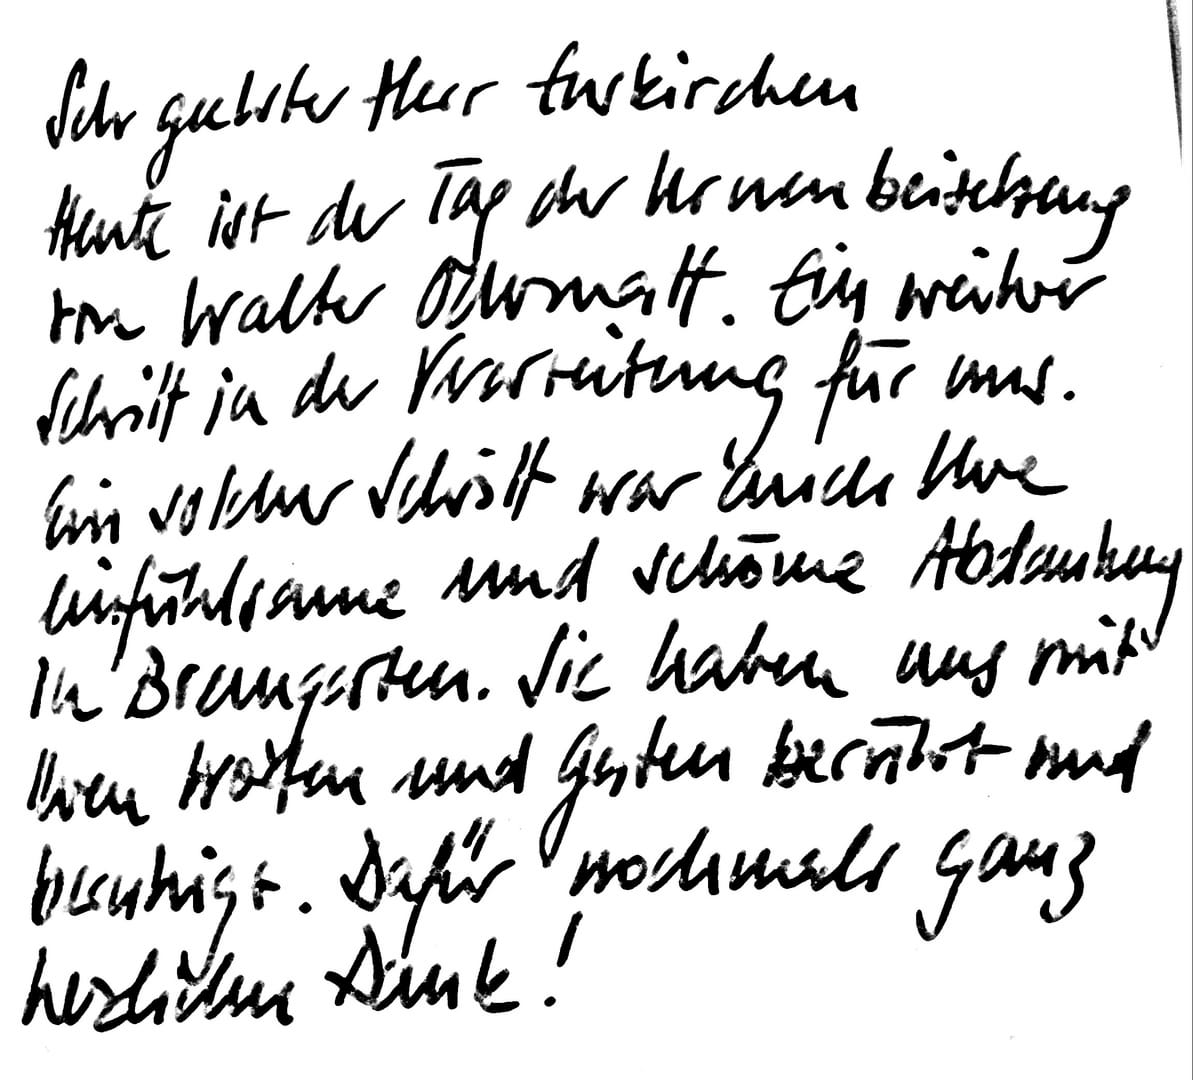 Sehr geehrter Herr Euskirchen
Heute ist der Tag der Urnenbeisetzung
von Walter Odermatt. Ein weiterer
Schritt in der Verarbeitung für uns.
Ein solcher Schritt war auch Ihre
einfühlsame und schöne Abdankung
in Bremgarten. Sie haben uns mit
Ihren Worten und Gesten berührt und
beruhigt. Dafür nochmals ganz
herzlichen Dank!